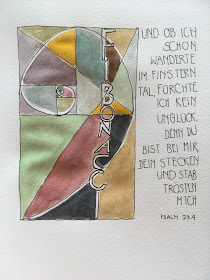 FIBONACC
UND OB ICH
SCHON
WANDERTE
IM FINSTERN
TAL, FÜRCHTE
ICH KEIN
UNGLÜCK,
DENN DU
BIST BEI MIR,
DEIN STECKEN
UND STAB
TRÖSTEN
MICH
PSALM 23.4